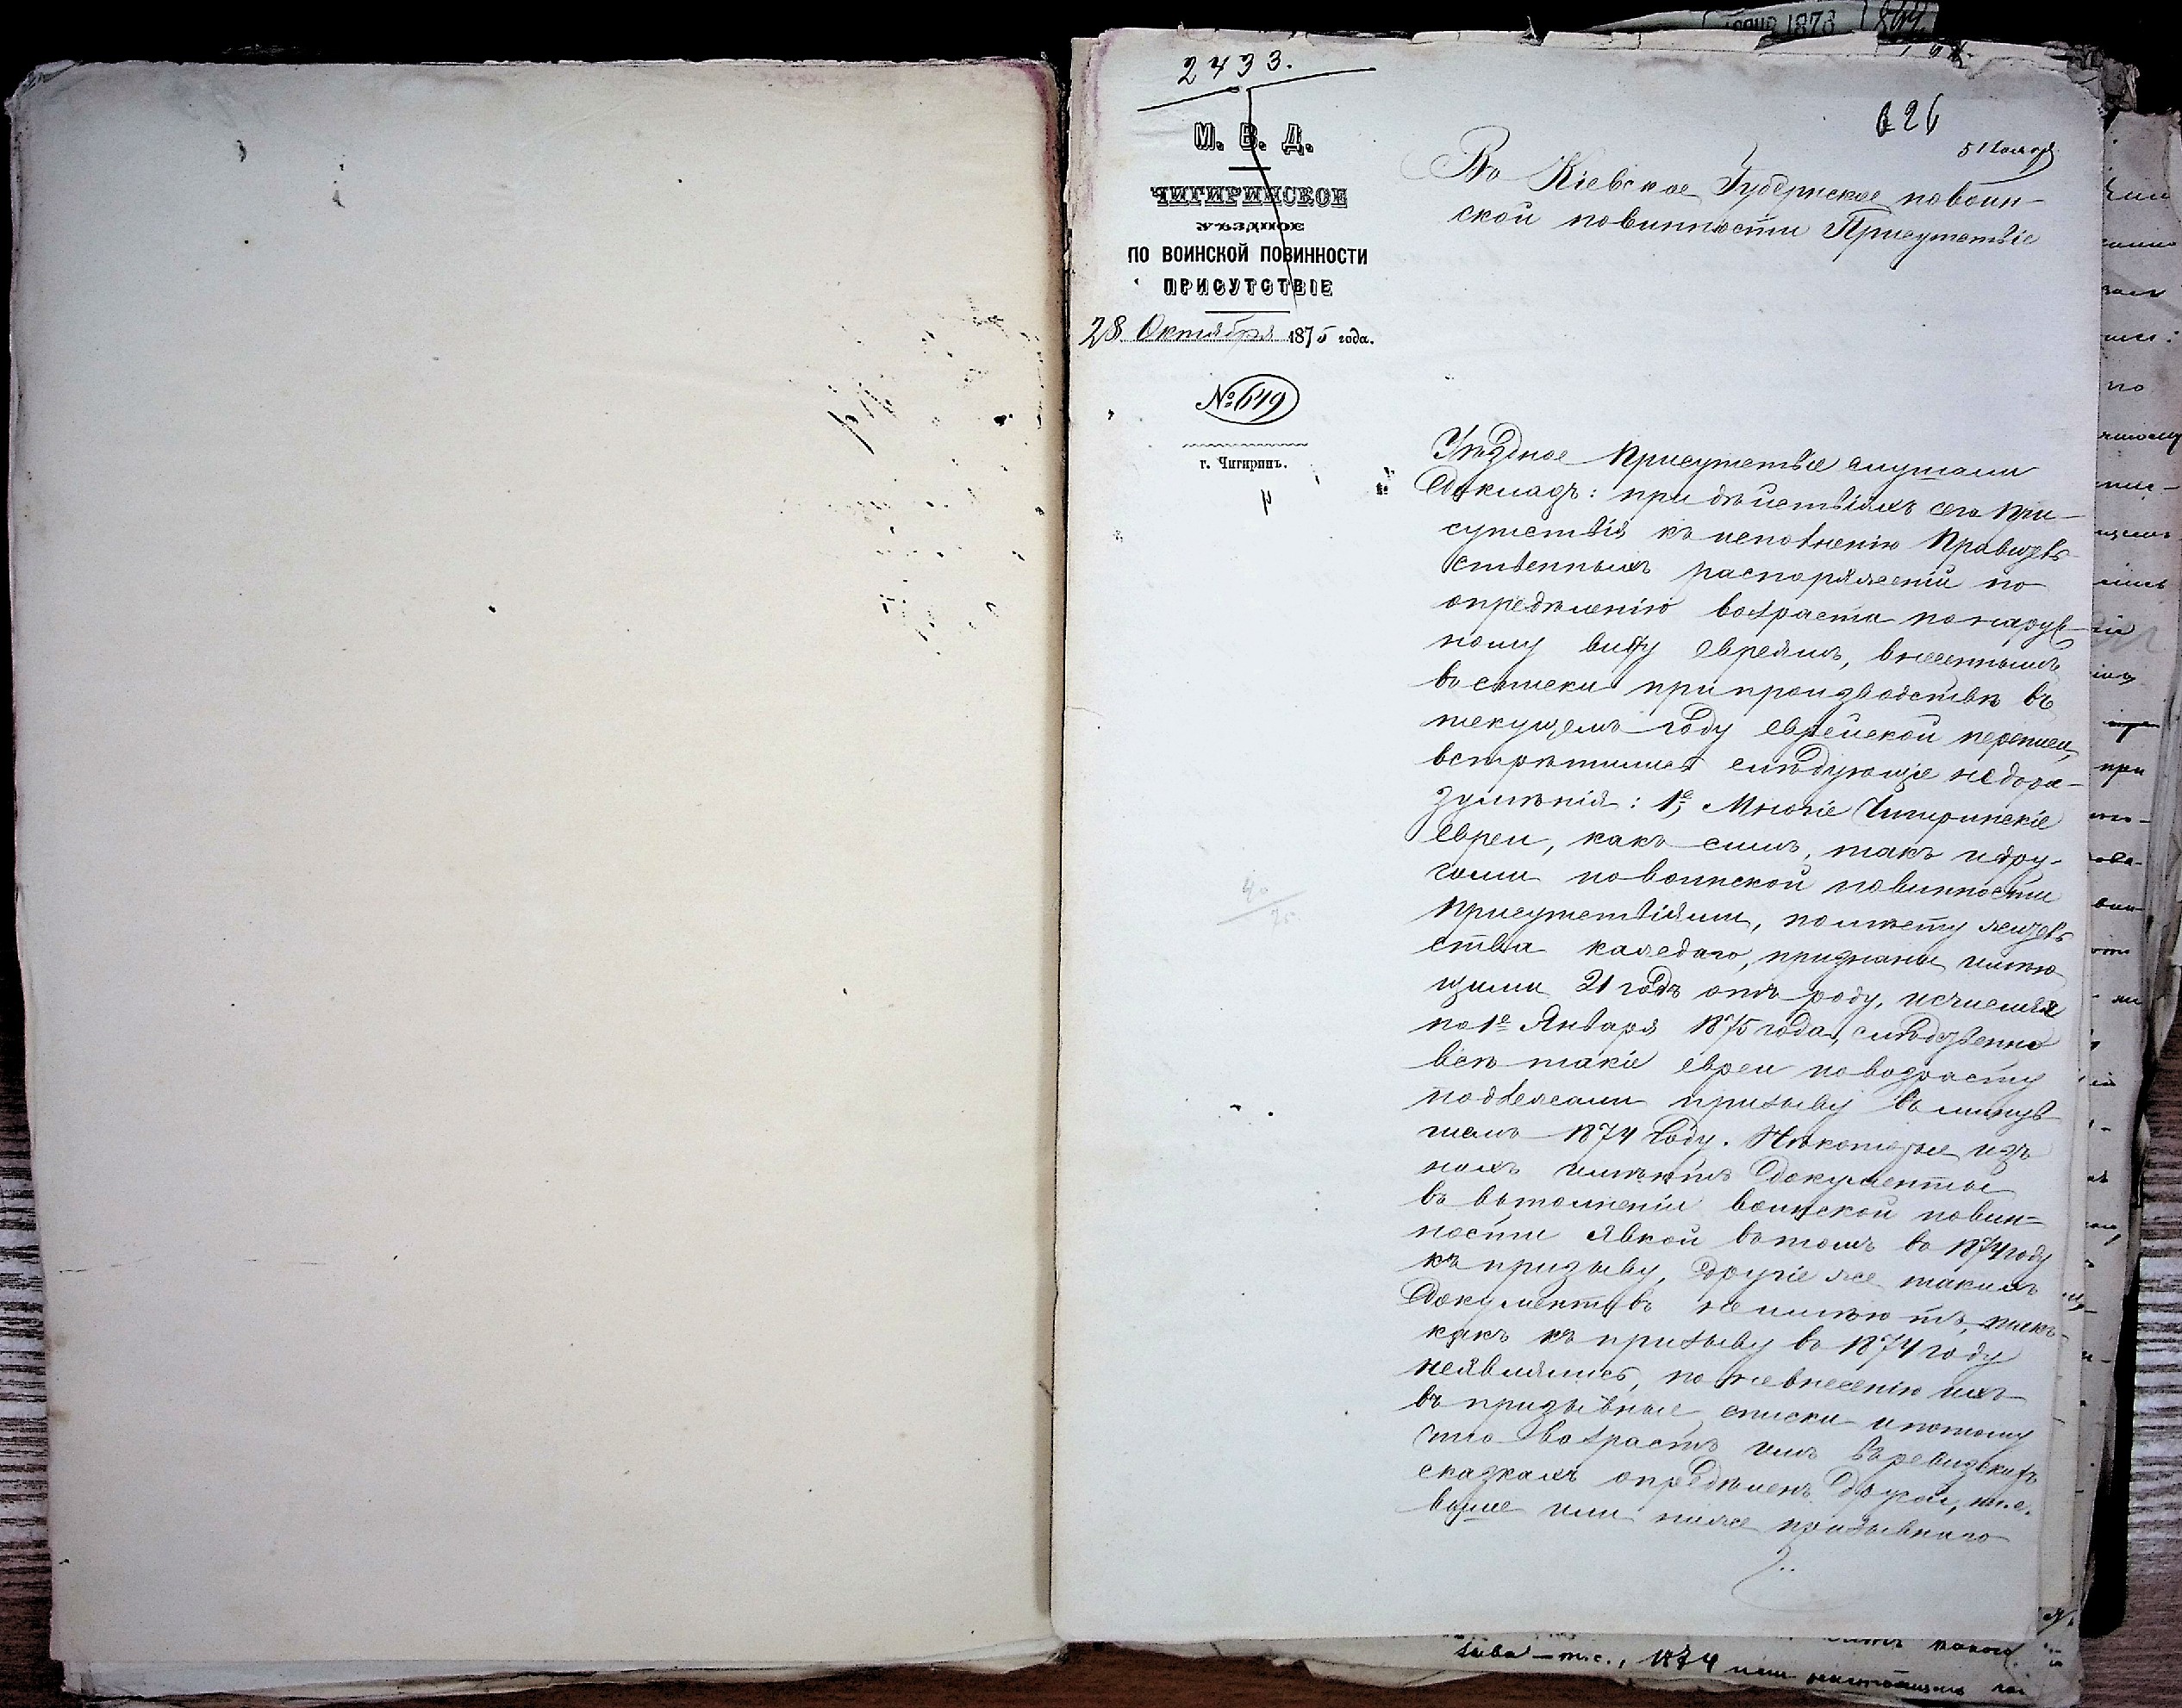 2433.
М. В. Д.
ЧИГИРИНСКОЕ
УѢЗДНОЕ
ПО ВОИНСКОЙ ПОВИННОСТИ
ПРИСУТСТВІЕ
28 Октября 1875 года.
№ 649
г. Чигиринъ.
626
Въ Кіевское Губернское по воин-
ской повинности Присутствіе
Уѣздное Присутствіе слушали
докладъ: при дѣйствіяхъ сего При-
сутствія къ исполненію Правитель-
ственныхъ распоряженій по
опредѣленію возраста по наруж-
ному виду евреямъ, внесеннымъ
въ списки при производствѣ въ
текущемъ году еврейской переписи,
встрѣтились слѣдующіе недора-
зумѣнія: 1е, Многіе Чигиринскіе
евреи, какъ симъ, такъ и дру-
гими по воинской повинности
Присутствіями, по мѣсту житель
ства каждаго, признаны имѣю
щими 21 годъ отъ роду, исчисляя
по 1е Января 1875 года, слѣдственно
всѣ такіе евреи по возрасту
подлежали призыву въ минув
шемъ 1874 году. Нѣкоторые изъ
нихъ имѣютъ документы
въ выполненіи воинской повин-
ности явкой въ томъ въ 1874 году
къ призыву, другіе же такихъ
документовъ не имѣютъ, такъ
какъ къ призыву въ 1874 году
неявлялись, по невнесенію ихъ
въ призывные списки и потому
что возрастъ имъ въ ревизскихъ
сказкахъ опредѣленъ другой, т.е.
выше или ниже призывнаго